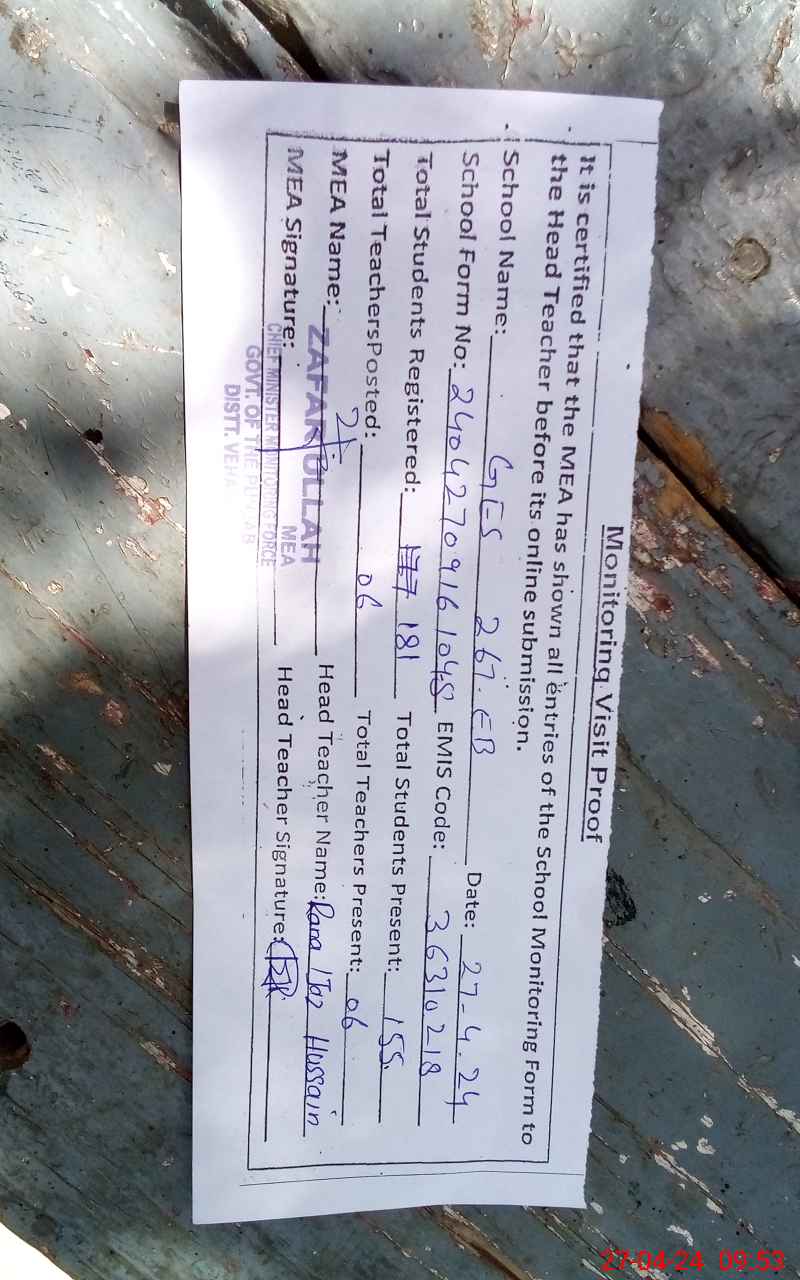 Monitoring Visit Proof
It is certified that the MEA has shown all entries of the School Monitoring Form to
the Head Teacher before its online submission.
School Name: GES 267.EB Date: 27-4.24
School Form No: EMIS Code: 36310218
Total Students Registered: 181 Total Students Present: 155
Total TeachersPosted: 06 Total Teachers Present: 06
MEA Name: ZAFAR ULLAH Head Teacher Name: Rana Ijaz Hussain
MEA
MEA Signature: Head Teacher Signature:
CHIEF MINISTER MONITORING FORCE
GOVT. OF THE PUNJAB
DISTT. VEHA
27-04-24 09:53